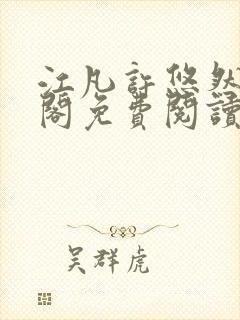 江凡許悠然
閣免費閱讀
吴群虎